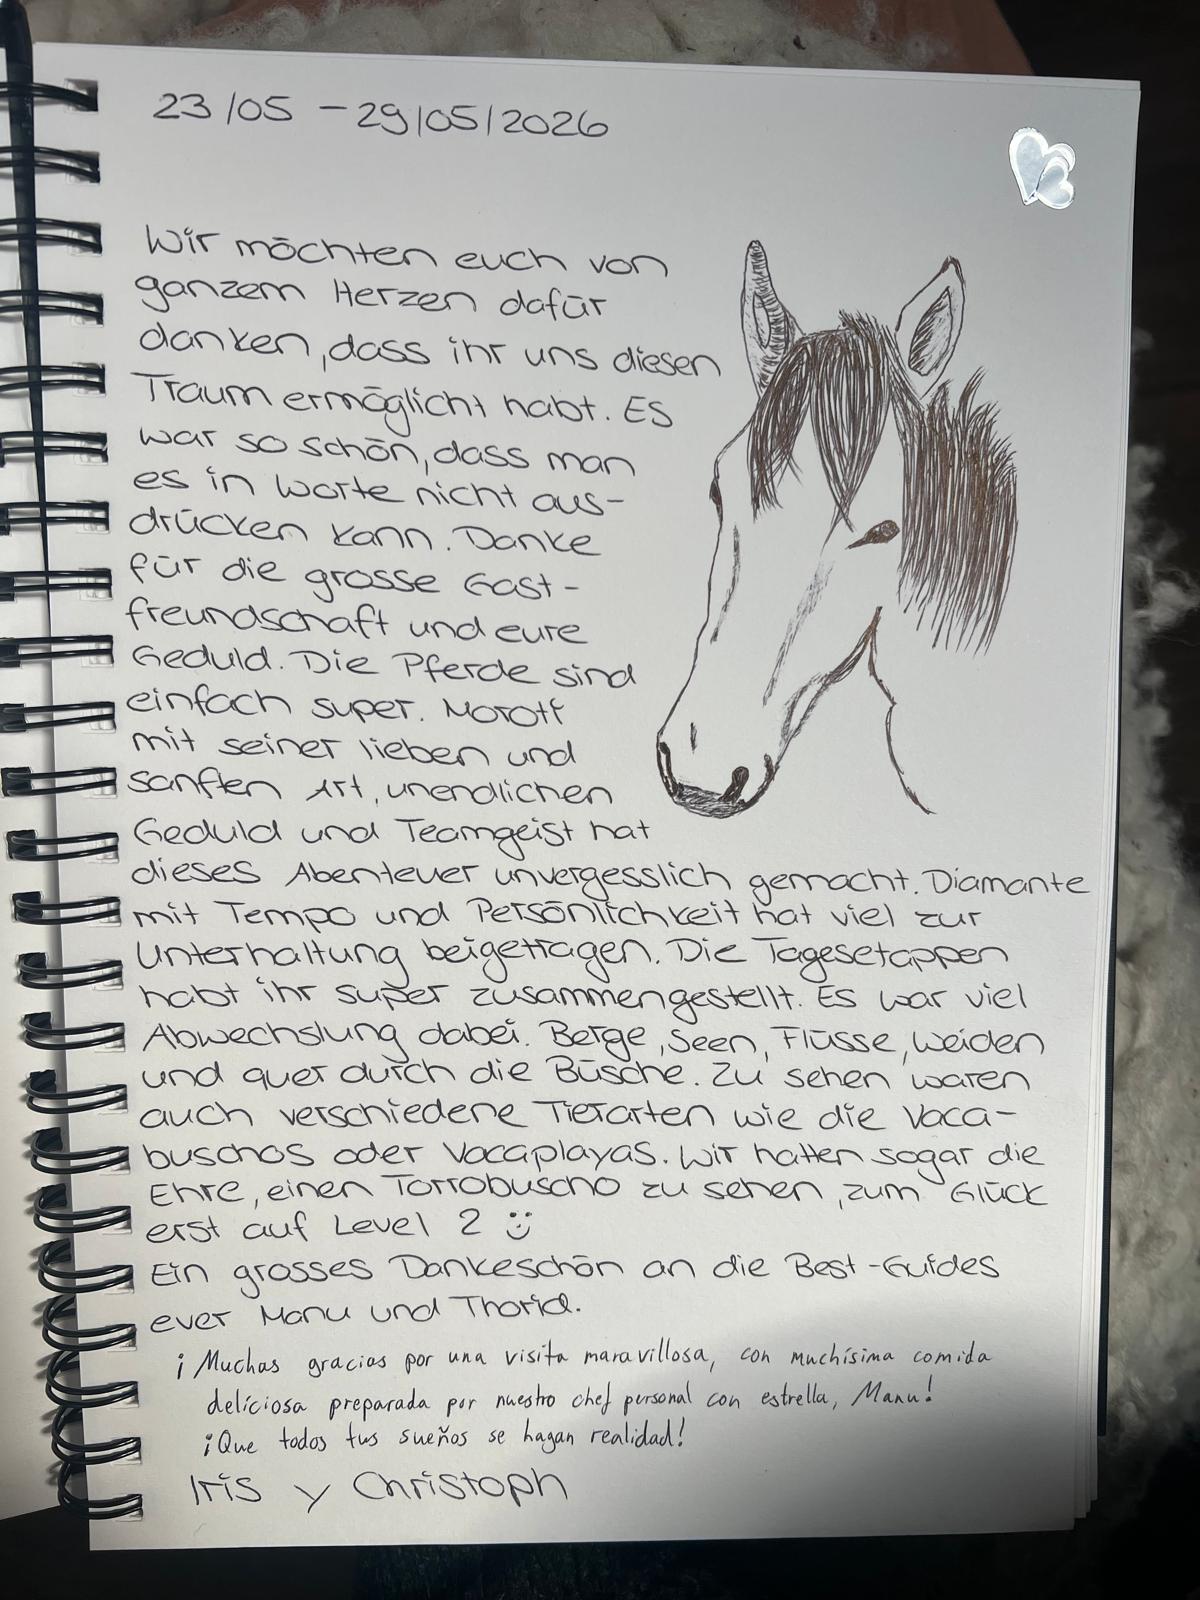 23/05 – 29/05/2026
Wir möchten euch von
ganzem Herzen dafür
danken, dass ihr uns diesen
Traum ermöglicht habt. Es
war so schön, dass man
es in Worte nicht aus-
drücken kann. Danke
für die grosse Gast-
freundschaft und eure
Geduld. Die Pferde sind
einfach super.
mit seiner lieben und
sanften Art, unendlichen
Geduld und Teamgeist hat
dieses Abenteuer unvergesslich gemacht. Diamante
mit Tempo und Persönlichkeit hat viel zur
Unterhaltung beigetragen. Die Tagesetappen
habt ihr super zusammengestellt. Es war viel
Abwechslung dabei. Berge, Seen, Flüsse, Weiden
und quer durch die Büsche. Zu sehen waren
auch verschiedene Tierarten wie die Vaca-
buschos oder Vacaplayas. Wir hatten sogar die
Ehre, einen Torrobuscho zu sehen, zum Glück
erst auf Level 2 :)
Ein grosses Dankeschön an die Best-Guides
ever Manu und Thorid.
¡Muchas gracias por una visita maravillosa, con muchísima comida
deliciosa preparada por nuestro chef personal con estrella, Manu!
¡Que todos tus sueños se hagan realidad!
Iris y Christoph